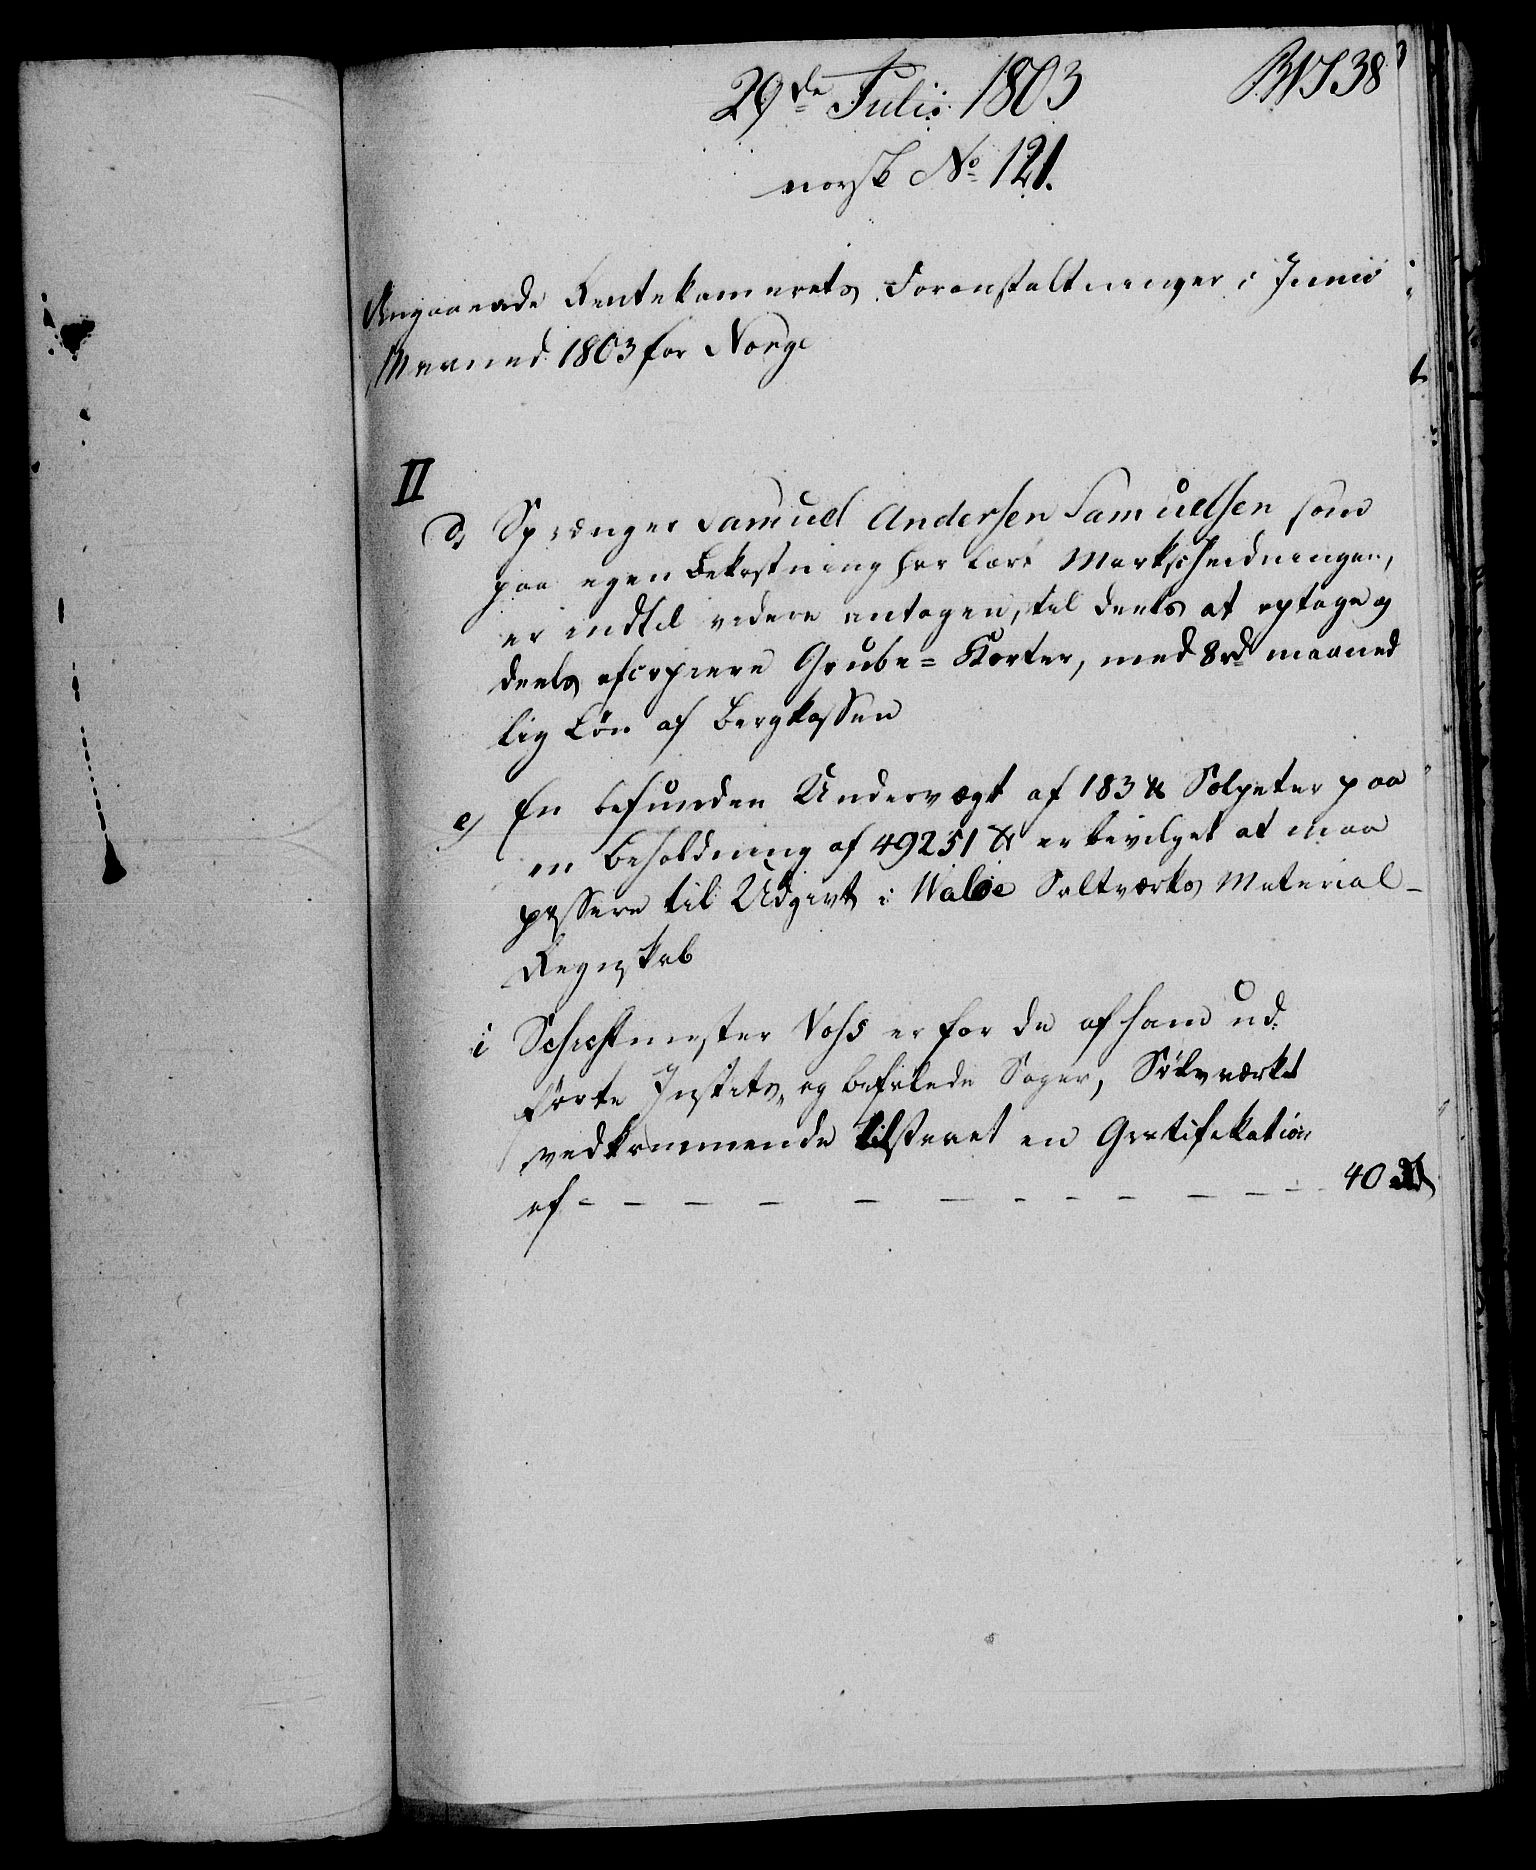 29de Julii 1803
norsk No 121.
Angaaende Rentekamerets Foranstaltninger i Junio
Maaned 1803 for Norge
II
d, Sprænger Samuel Andersen Samuelsen som
paa egen Bekostning har lært Markscheidningen,
er indtil videre antagen, til deels at optage og
deels afcopiere Grube=Karter, med 8 rd maaned
lig Løn af Bergkassen
e, En befunden Undervægt af 183 ℔ Salpeter paa
en Beholdning af 49251 ℔ er bevilget at maa
passere til Udgivt i Waløe Saltværks Material-
Regnskab
i Schichtmester Vohs er for de af ham ud
førte Justits- og befalede Sager, Sölvværket
vedkommende tilstaaet en Gratifikation
af - - - - - - - - - - - 40 rd